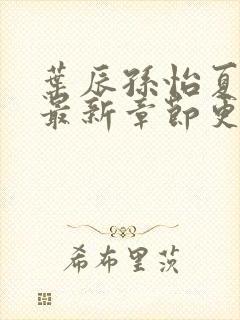 葉辰孫怡夏
最新章節更
希布里茨